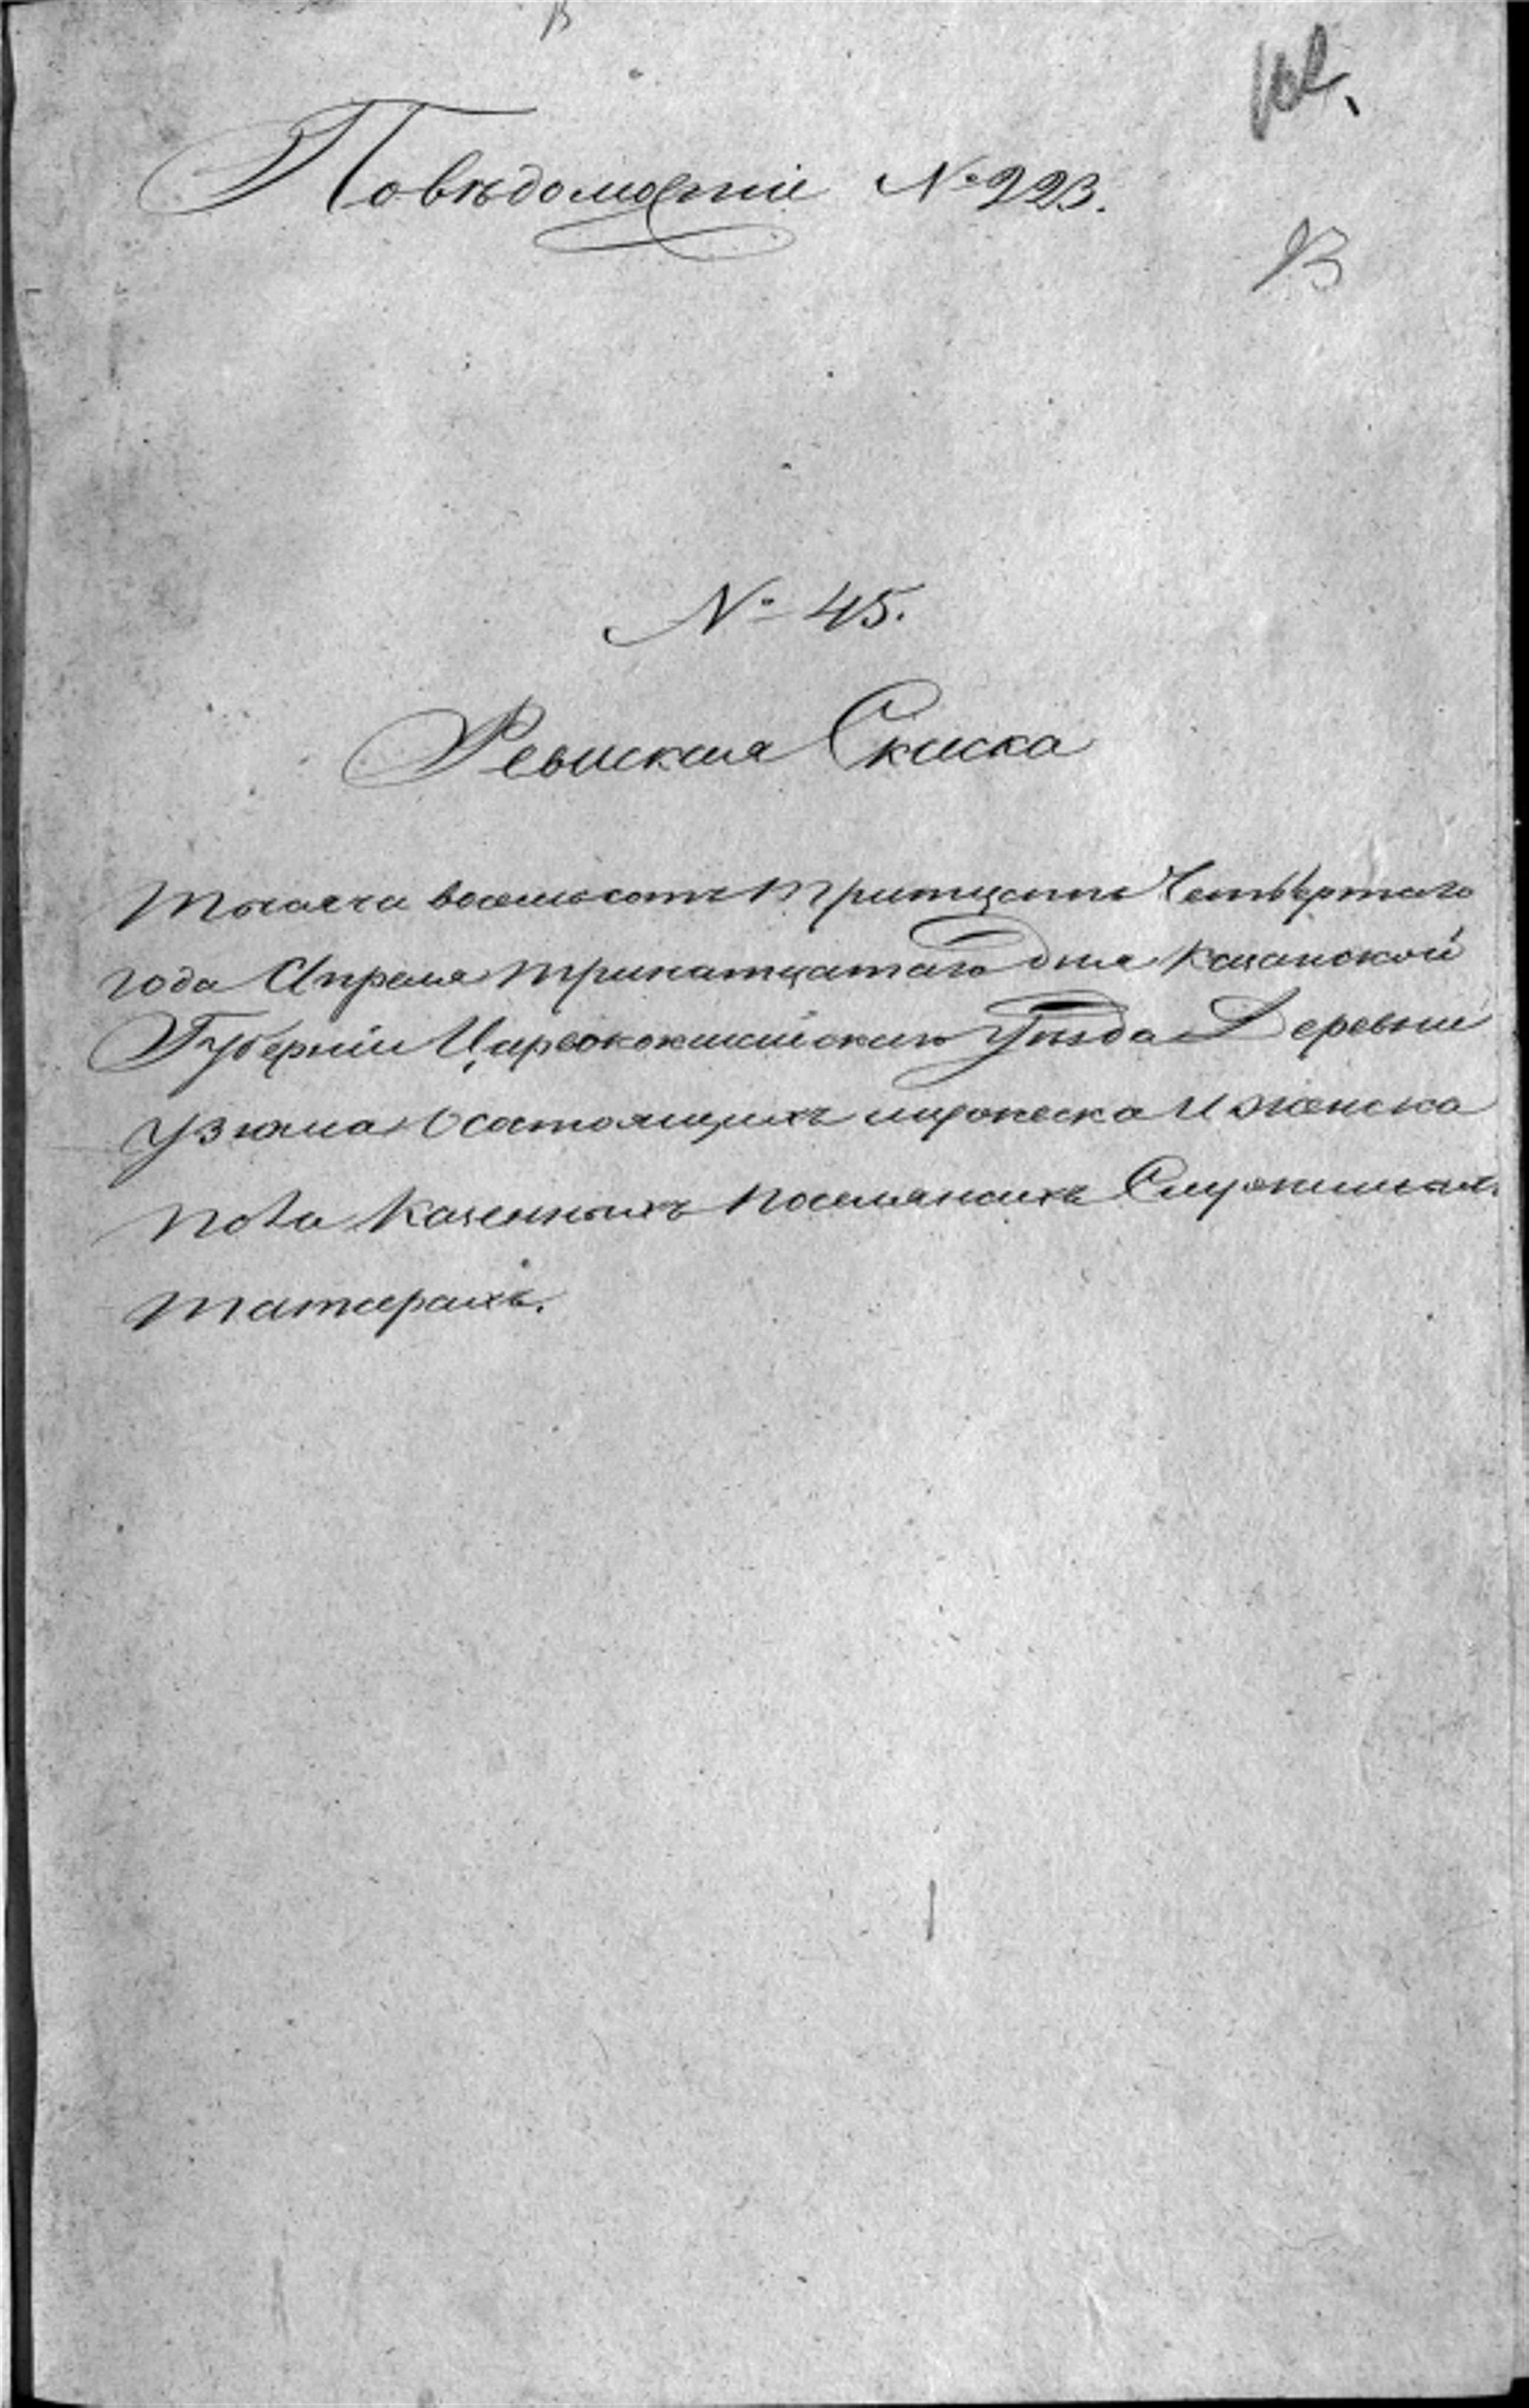 По вѣдомости №223.
№ 45.
Ревиская Скаска
Тысяча восемьсотъ Тритцать Четвертаго
года Апреля тринатцатаго дня Казанской
Губерніи Царевококшайскаго Уѣзда Деревни
Узюма О состоящихъ мужеска И женска
пола Казенныхъ поселянахъ Служилыхъ
татарахъ.